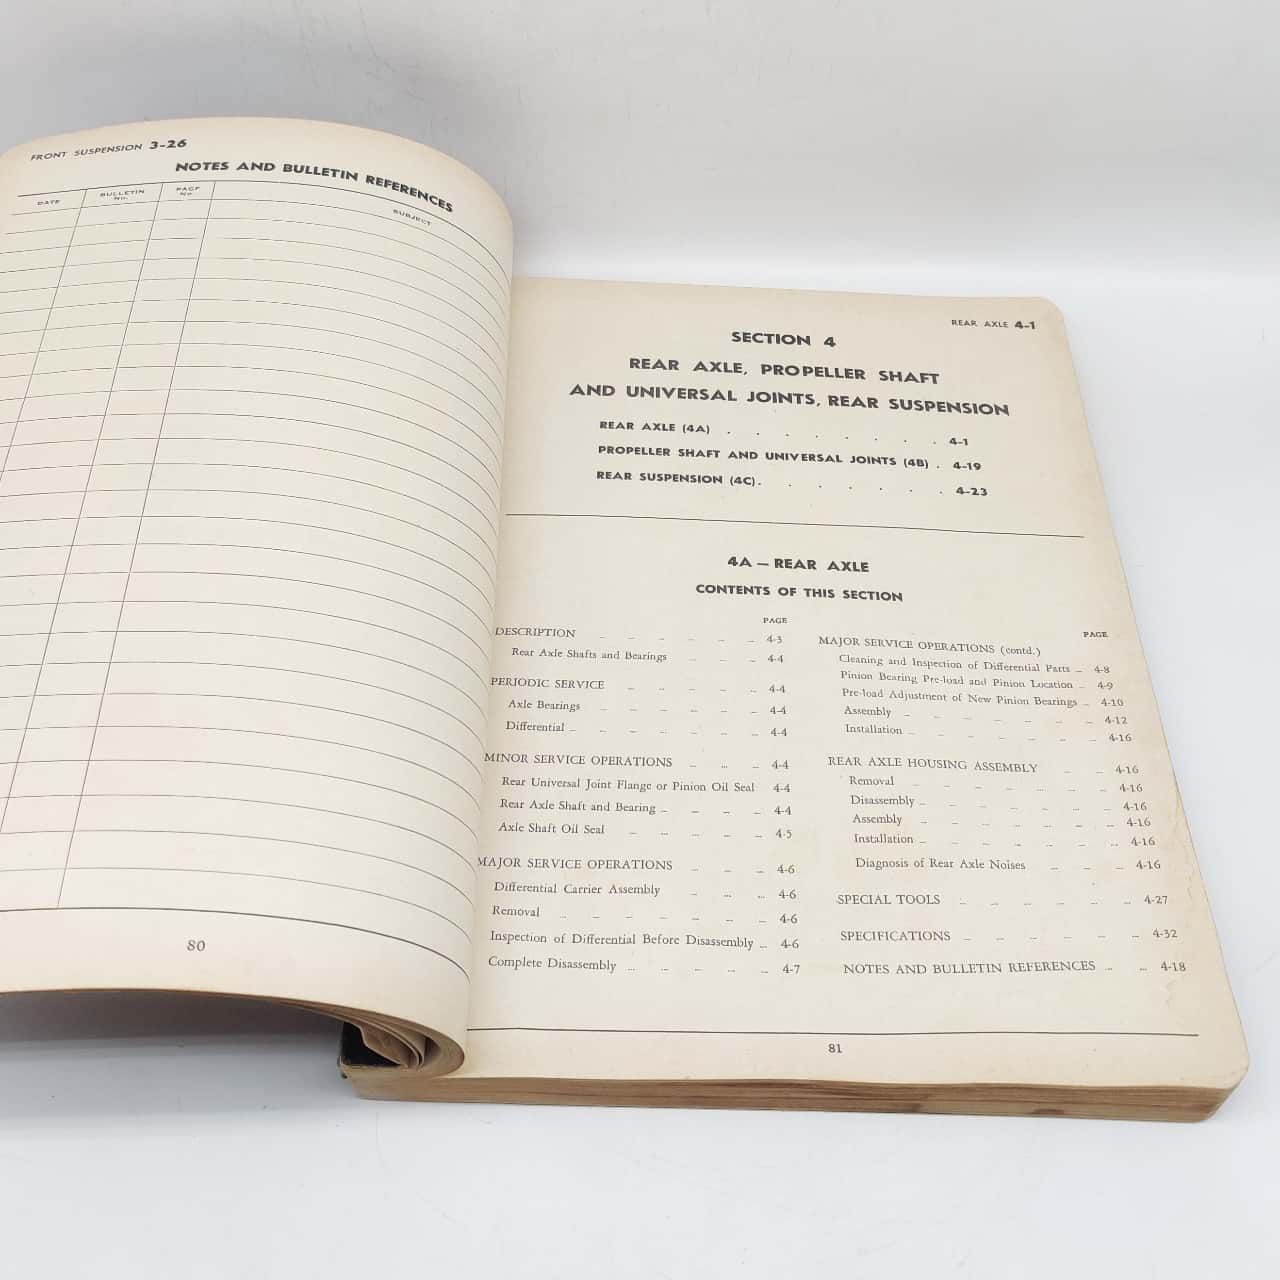 FRONT SUSPENSION 3-26
NOTES AND BULLETIN REFERENCES
DATE BULLETIN No. PAGE No. SUBJECT
80
REAR AXLE 4-1
SECTION 4
REAR AXLE, PROPELLER SHAFT
AND UNIVERSAL JOINTS, REAR SUSPENSION
REAR AXLE (4A) . . . . . . . . 4-1
PROPELLER SHAFT AND UNIVERSAL JOINTS (4B) . 4-19
REAR SUSPENSION (4C). . . . . . . 4-23
4A — REAR AXLE
CONTENTS OF THIS SECTION
PAGE
DESCRIPTION 4-3
Rear Axle Shafts and Bearings 4-4
PERIODIC SERVICE 4-4
Axle Bearings 4-4
Differential 4-4
MINOR SERVICE OPERATIONS 4-4
Rear Universal Joint Flange or Pinion Oil Seal 4-4
Rear Axle Shaft and Bearing 4-4
Axle Shaft Oil Seal 4-5
MAJOR SERVICE OPERATIONS 4-6
Differential Carrier Assembly 4-6
Removal 4-6
Inspection of Differential Before Disassembly 4-6
Complete Disassembly 4-7
PAGE
MAJOR SERVICE OPERATIONS (contd.)
Cleaning and Inspection of Differential Parts 4-8
Pinion Bearing Pre-load and Pinion Location 4-9
Pre-load Adjustment of New Pinion Bearings 4-10
Assembly 4-12
Installation 4-16
REAR AXLE HOUSING ASSEMBLY 4-16
Removal 4-16
Disassembly 4-16
Assembly 4-16
Installation 4-16
Diagnosis of Rear Axle Noises 4-16
SPECIAL TOOLS 4-27
SPECIFICATIONS 4-32
NOTES AND BULLETIN REFERENCES 4-18
81